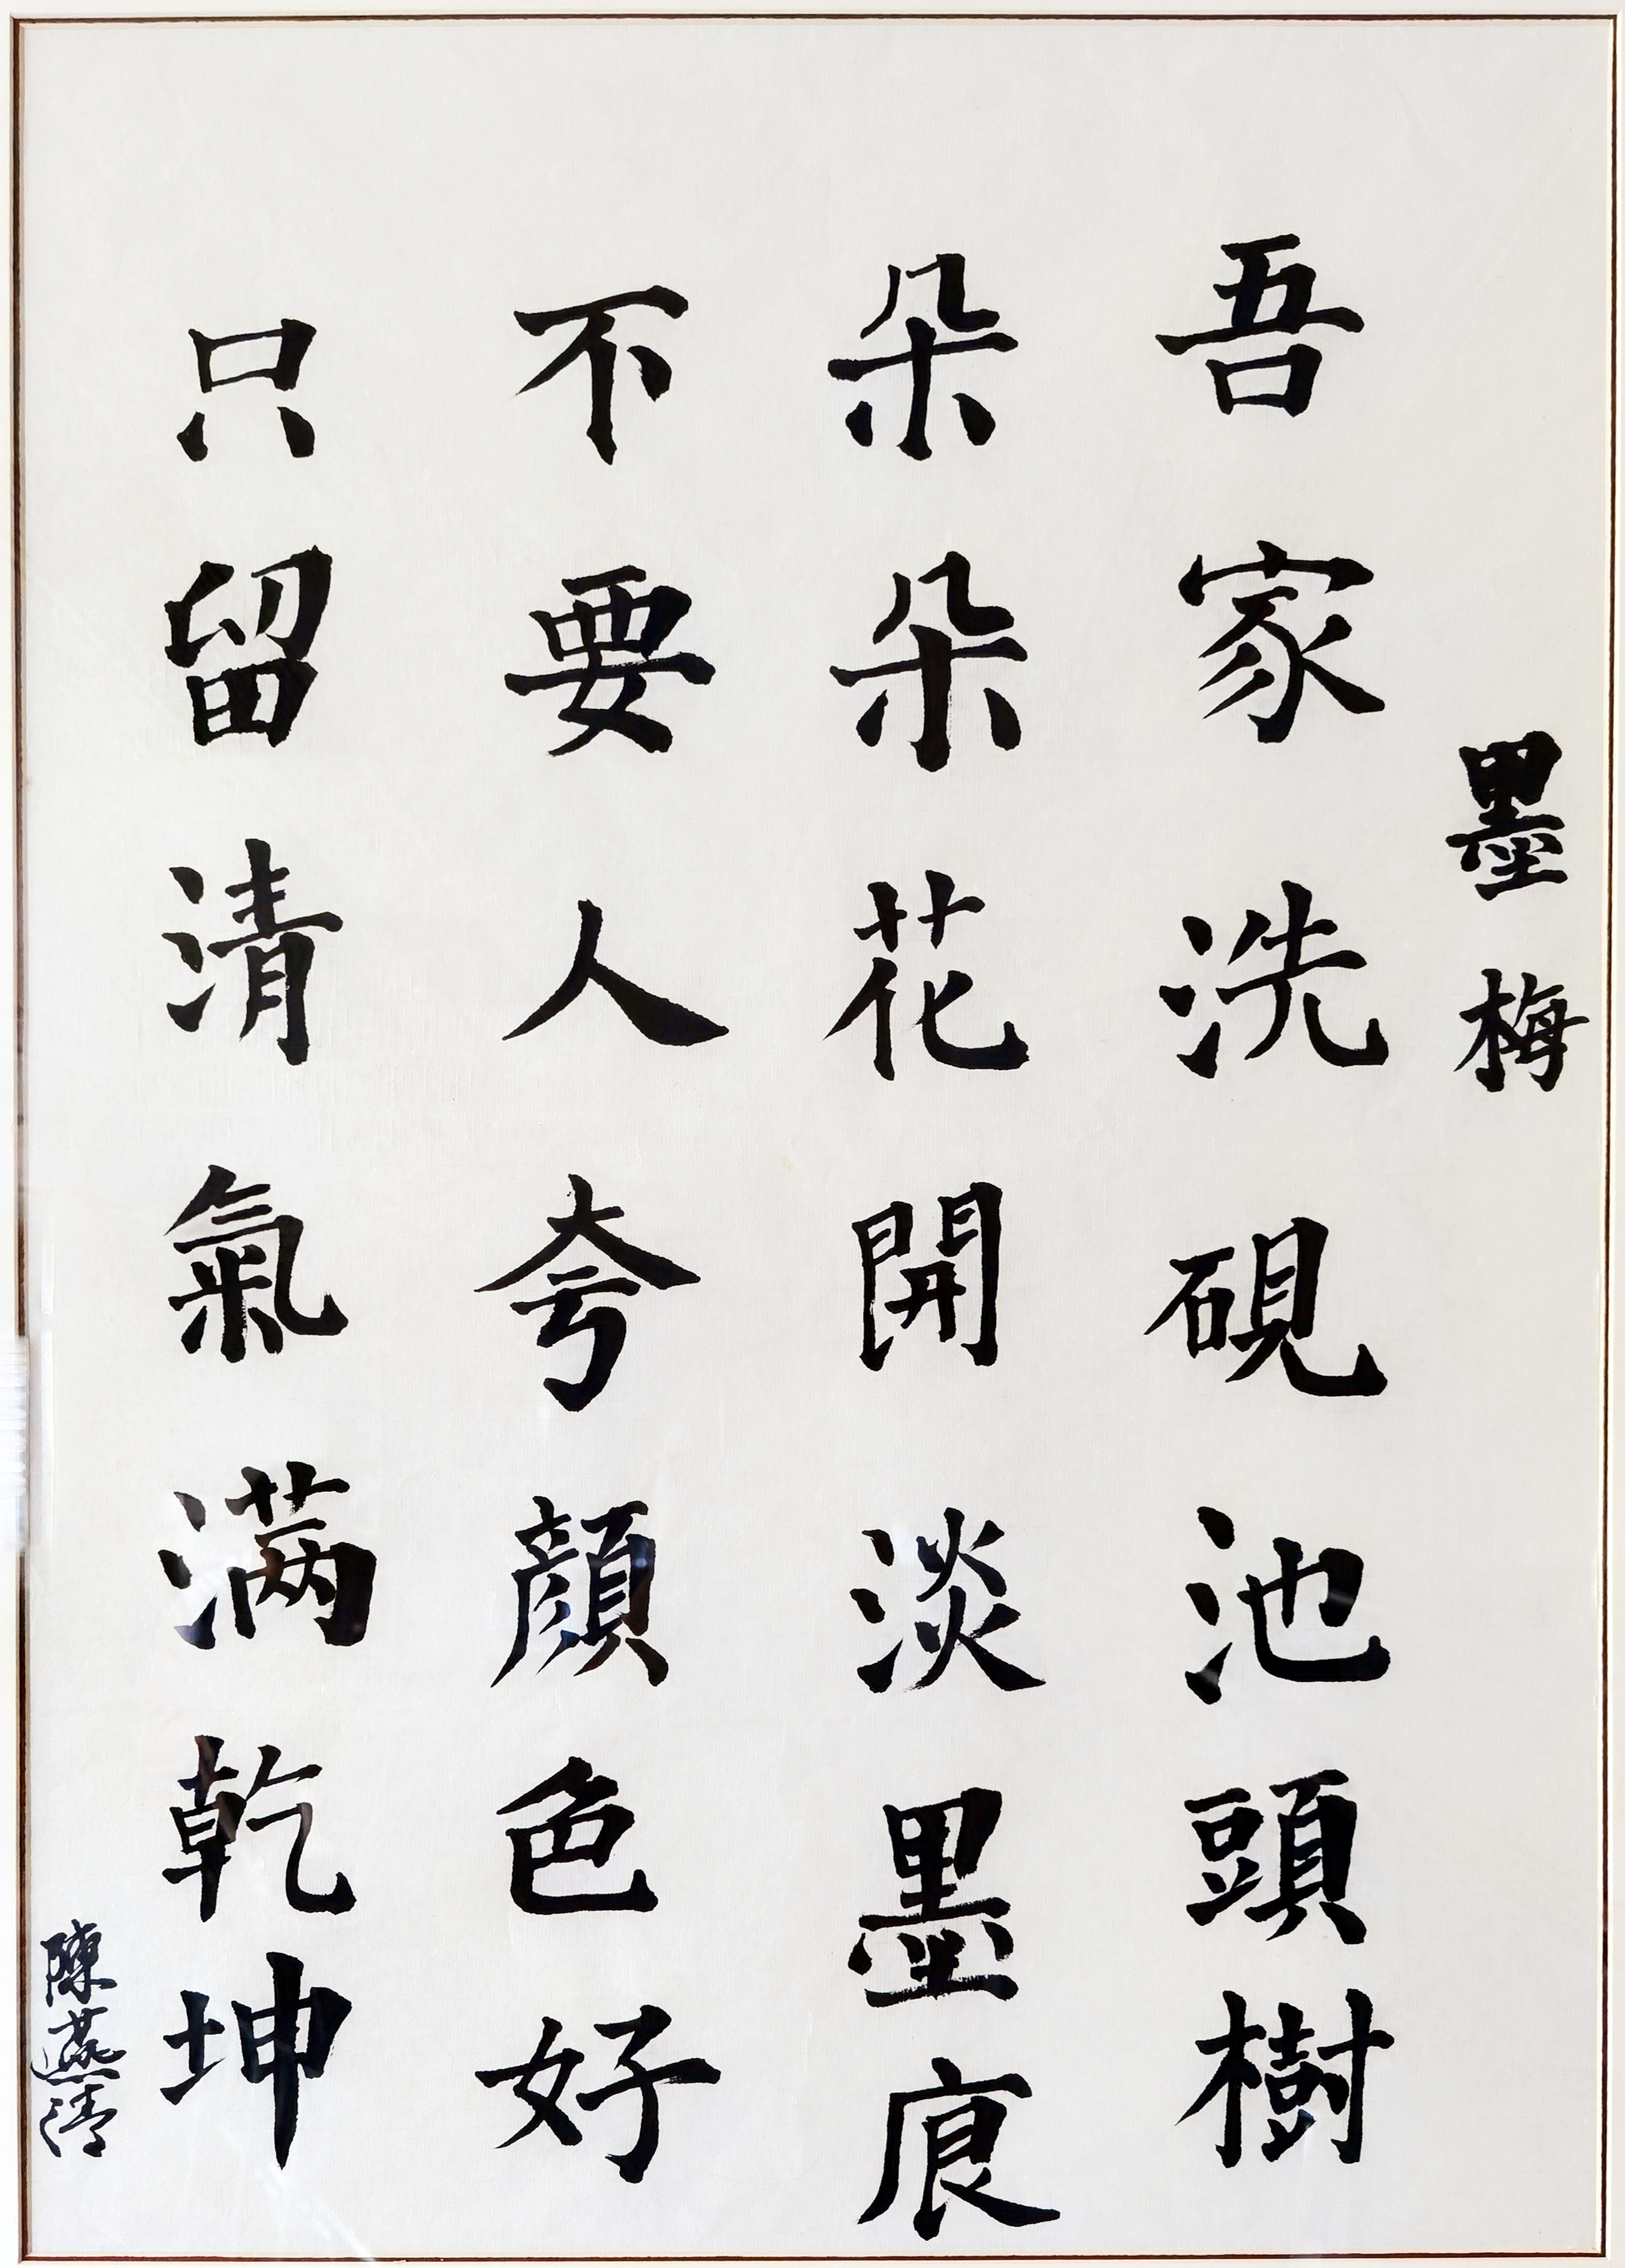 墨梅
吾家洗硯池頭樹
朵朵花開淡墨痕
不要人夸顔色好
只留清氣滿乾坤
陳燕清